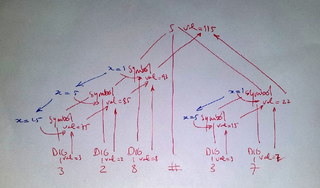 S val=115
x=1 Symbol
val=93
x=5 Symbol
val=85
x=1 Symbol
val=22
x=1,5 Symbol
val=75
x=5 Symbol
val=15
DIG DIG DIG DIG DIG
val=3 val=2 val=8 val=3 val=7
3 2 8 # 3 7